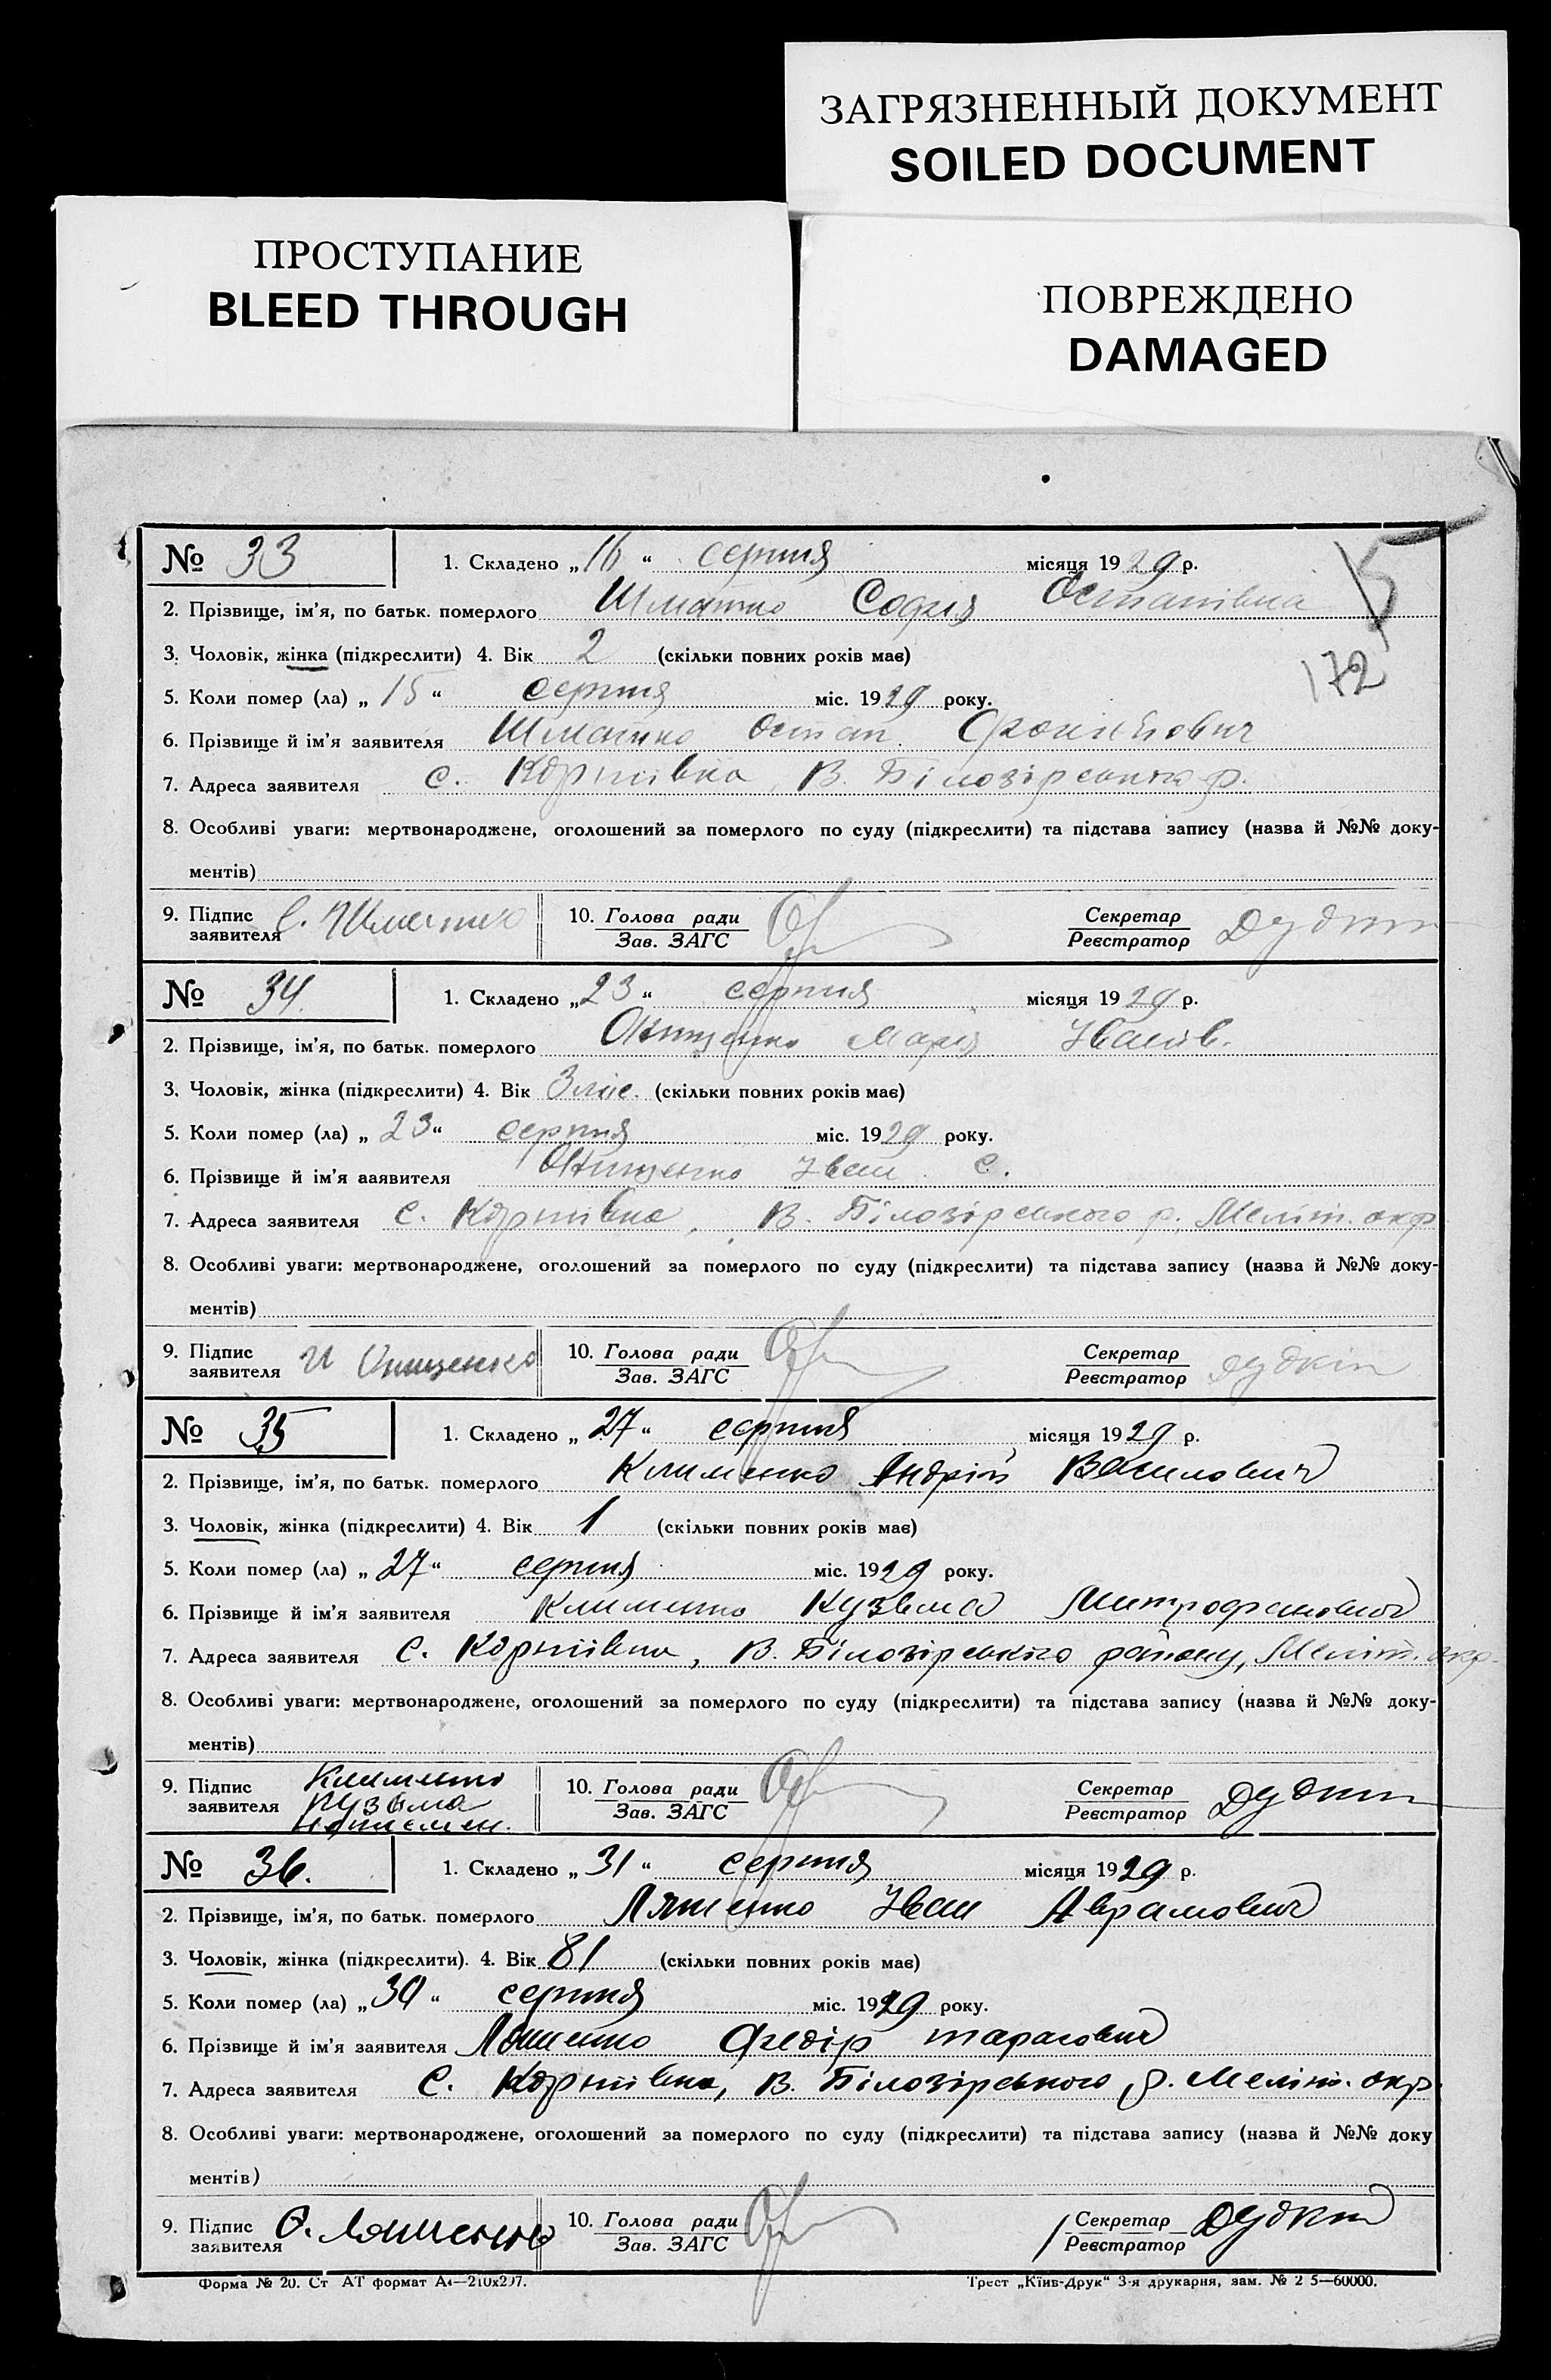 ЗАГРЯЗНЕННЫЙ ДОКУМЕНТ
SOILED DOCUMENT
ПРОСТУПАНИЕ
BLEED THROUGH
ПОВРЕЖДЕНО
DAMAGED
№ 33 1. Складено „16“ серпня місяця 1929 р.
2. Прізвище, ім'я, по батьк. померлого Шматко Софія Остапівна
172
3. Чоловік, жінка (підкреслити) 4. Вік 2 (скільки повних років має)
5. Коли помер (ла) „15“ серпня міс. 1929 року.
6. Прізвище й ім'я заявителя Шматко Остап
7. Адреса заявителя с. Корніївка, В. Білозірського р.
8. Особливі уваги: мертвонароджене, оголошений за померлого по суду (підкреслити) та підстава запису (назва й №№ доку-
ментів)
9. Підпис заявителя О. Шматко 10. Голова ради Зав. ЗАГС Секретар Реєстратор Дудкін
№ 34. 1. Складено „23“ серпня місяця 1929 р.
2. Прізвище, ім'я, по батьк. померлого Онищенко Марія Іванів.
3. Чоловік, жінка (підкреслити) 4. Вік 3 міс. (скільки повних років має)
5. Коли помер (ла) „23“ серпня міс. 1929 року.
6. Прізвище й ім'я заявителя Онищенко Іван С.
7. Адреса заявителя с. Корніївка, В. Білозірського р. Меліт. окр
8. Особливі уваги: мертвонароджене, оголошений за померлого по суду (підкреслити) та підстава запису (назва й №№ доку-
ментів)
9. Підпис заявителя И Онищенко 10. Голова ради Зав. ЗАГС Секретар Реєстратор Дудкін
№ 35 1. Складено „27“ серпня місяця 1929 р.
2. Прізвище, ім'я, по батьк. померлого Клименко Андрій Василович
3. Чоловік, жінка (підкреслити) 4. Вік 1 (скільки повних років має)
5. Коли помер (ла) „27“ серпня міс. 1929 року.
6. Прізвище й ім'я заявителя Клименко Кузьма Митрофанович
7. Адреса заявителя с. Корніївка, В. Білозірського району, Меліт. окр.
8. Особливі уваги: мертвонароджене, оголошений за померлого по суду (підкреслити) та підстава запису (назва й №№ доку-
ментів)
9. Підпис заявителя Клименко Кузьма 10. Голова ради Зав. ЗАГС Секретар Реєстратор Дудкін
№ 36. 1. Складено „31“ серпня місяця 1929 р.
2. Прізвище, ім'я, по батьк. померлого Ляшенко Іван Аврамович
3. Чоловік, жінка (підкреслити). 4. Вік 81 (скільки повних років має)
5. Коли помер (ла) „30“ серпня міс. 1929 року.
6. Прізвище й ім'я заявителя Ляшенко Федір Тарасович
7. Адреса заявителя с. Корніївка, В. Білозірського р. Меліт. окр.
8. Особливі уваги: мертвонароджене, оголошений за померлого по суду (підкреслити) та підстава запису (назва й №№ доку
ментів)
9. Підпис заявителя Ф. Ляшенко 10. Голова ради Зав. ЗАГС Секретар Реєстратор Дудкін
Форма № 20. Ст АТ формат А4—210х297. Трест „Київ-Друк“ 3-я друкарня, зам. № 2 5—60000.